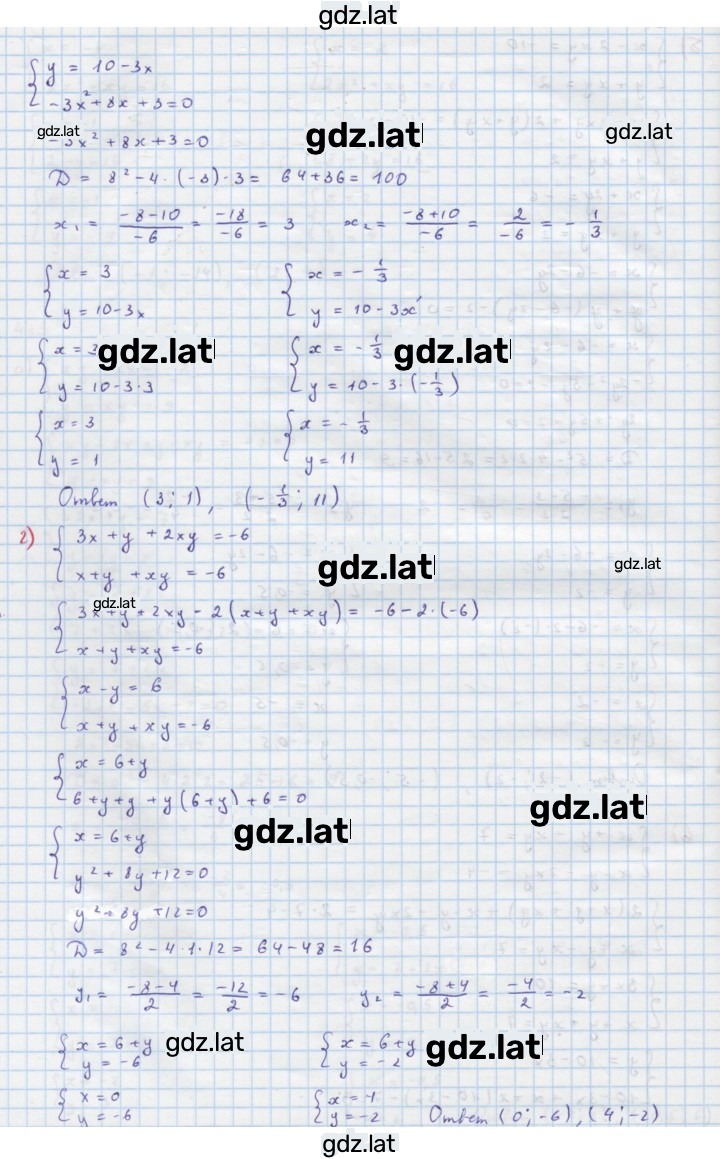 gdz.lat
{ y = 10 - 3x
{ -3x² + 8x + 3 = 0
gdz.lat
-3x² + 8x + 3 = 0
gdz.lat
gdz.lat
D = 8² - 4 · (-3) · 3 = 64 + 36 = 100
x₁ = (-8-10)/(-6) = (-18)/(-6) = 3   x₂ = (-8+10)/(-6) = 2/(-6) = - 1/3
{ x = 3   { x = - 1/3
{ y = 10 - 3x   { y = 10 - 3x
{ x = 3   { x = - 1/3
gdz.lat gdz.lat
{ y = 10 - 3 · 3   { y = 10 - 3 · (- 1/3)
{ x = 3   { x = - 1/3
{ y = 1   { y = 11
Ответ (3; 1), (- 1/3; 11)
2) { 3x + y + 2xy = -6
{ x + y + xy = -6
gdz.lat gdz.lat
gdz.lat
{ 3x + y + 2xy - 2(x + y + xy) = -6 - 2 · (-6)
{ x + y + xy = -6
{ x - y = 6
{ x + y + xy = -6
{ x = 6 + y
{ 6 + y + y + y(6 + y) + 6 = 0
gdz.lat
gdz.lat
{ x = 6 + y
{ y² + 8y + 12 = 0
y² + 8y + 12 = 0
D = 8² - 4 · 1 · 12 = 64 - 48 = 16
y₁ = (-8-4)/2 = (-12)/2 = -6   y₂ = (-8+4)/2 = (-4)/2 = -2
{ x = 6 + y   { x = 6 + y
gdz.lat gdz.lat
{ y = -6   { y = -2
{ x = 0   { x = 4
{ y = -6   { y = -2   Ответ (0; -6), (4; -2)
gdz.lat